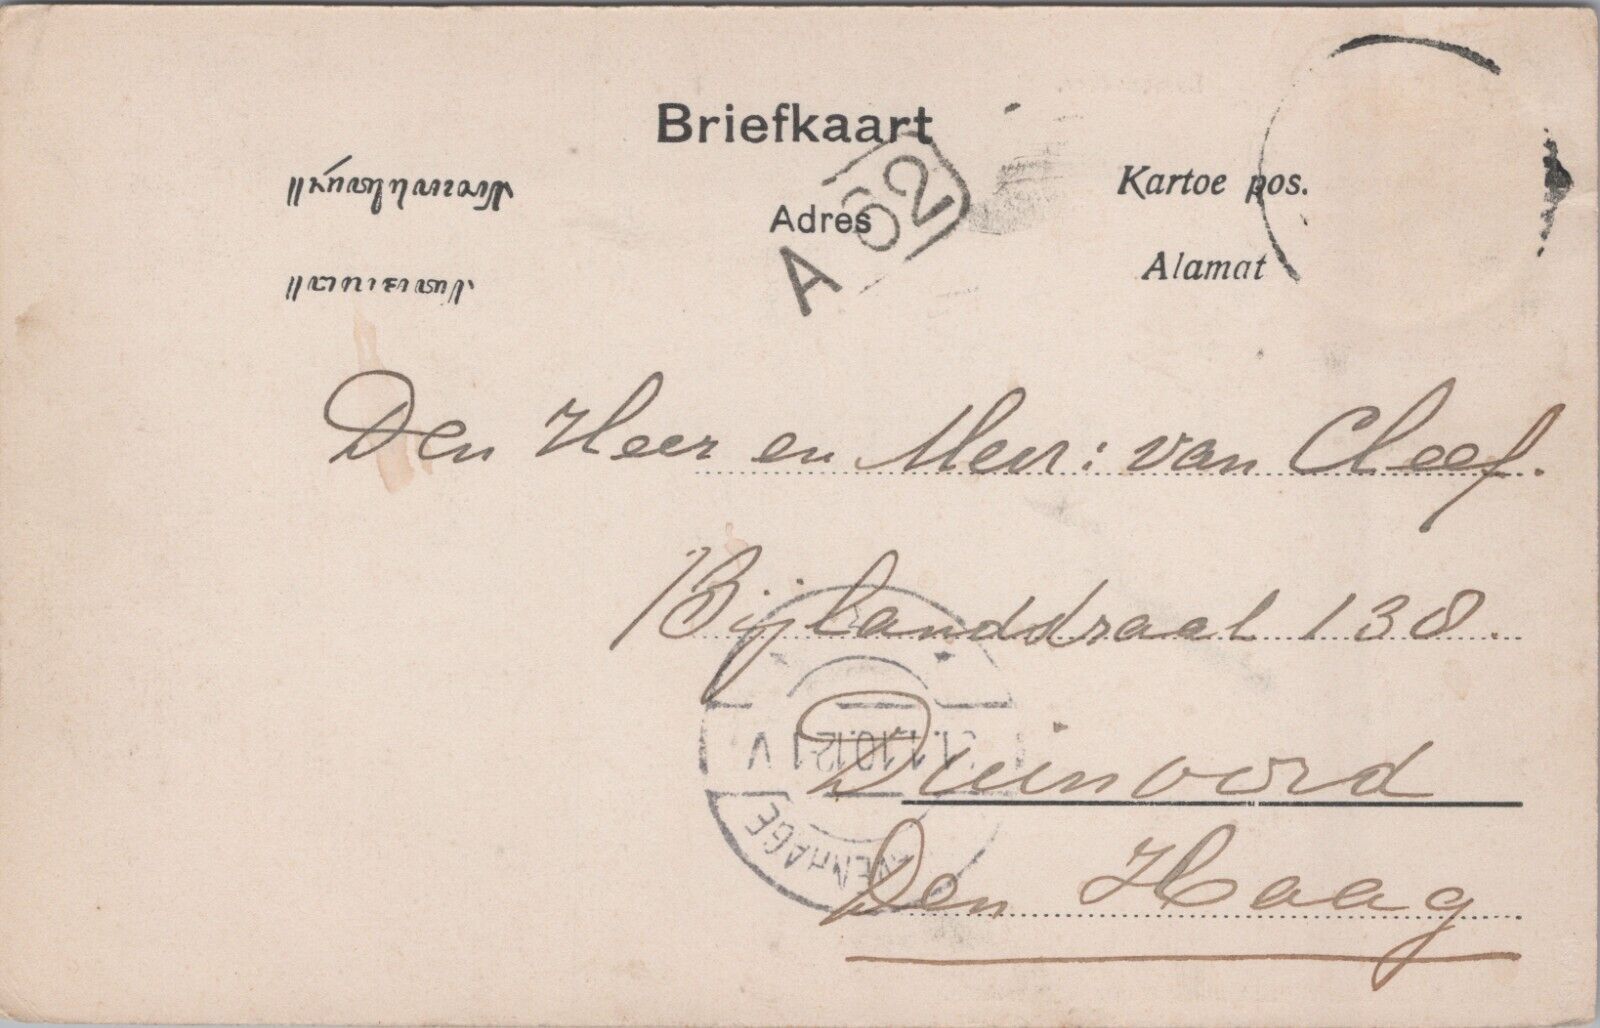 Briefkaart
Adres
Kartoe pos.
Alamat
A
62
Den Heer en Mevr: van Cleef.
Bijlandstraat 138.
Duinoord
Den Haag
1.10.12-1 V
ENHAGE